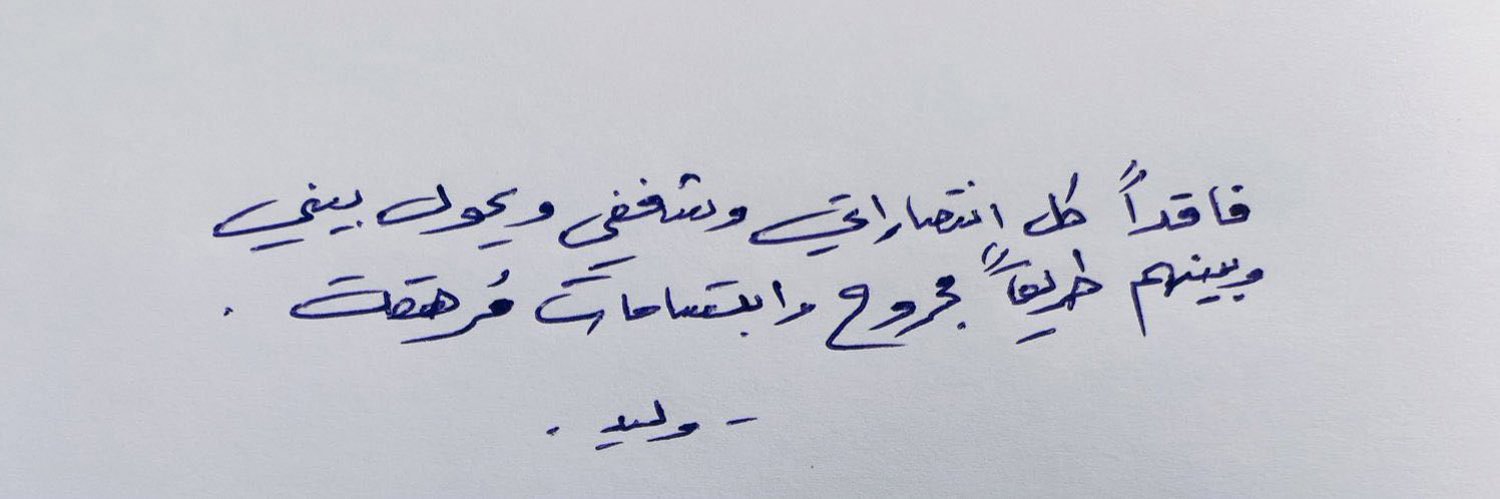 فاقداً كل انتصاراتي وشغفي ويحول بيني
وبينهم طريقاً مجروح وابتسامات مُرهقة .
- وليد .